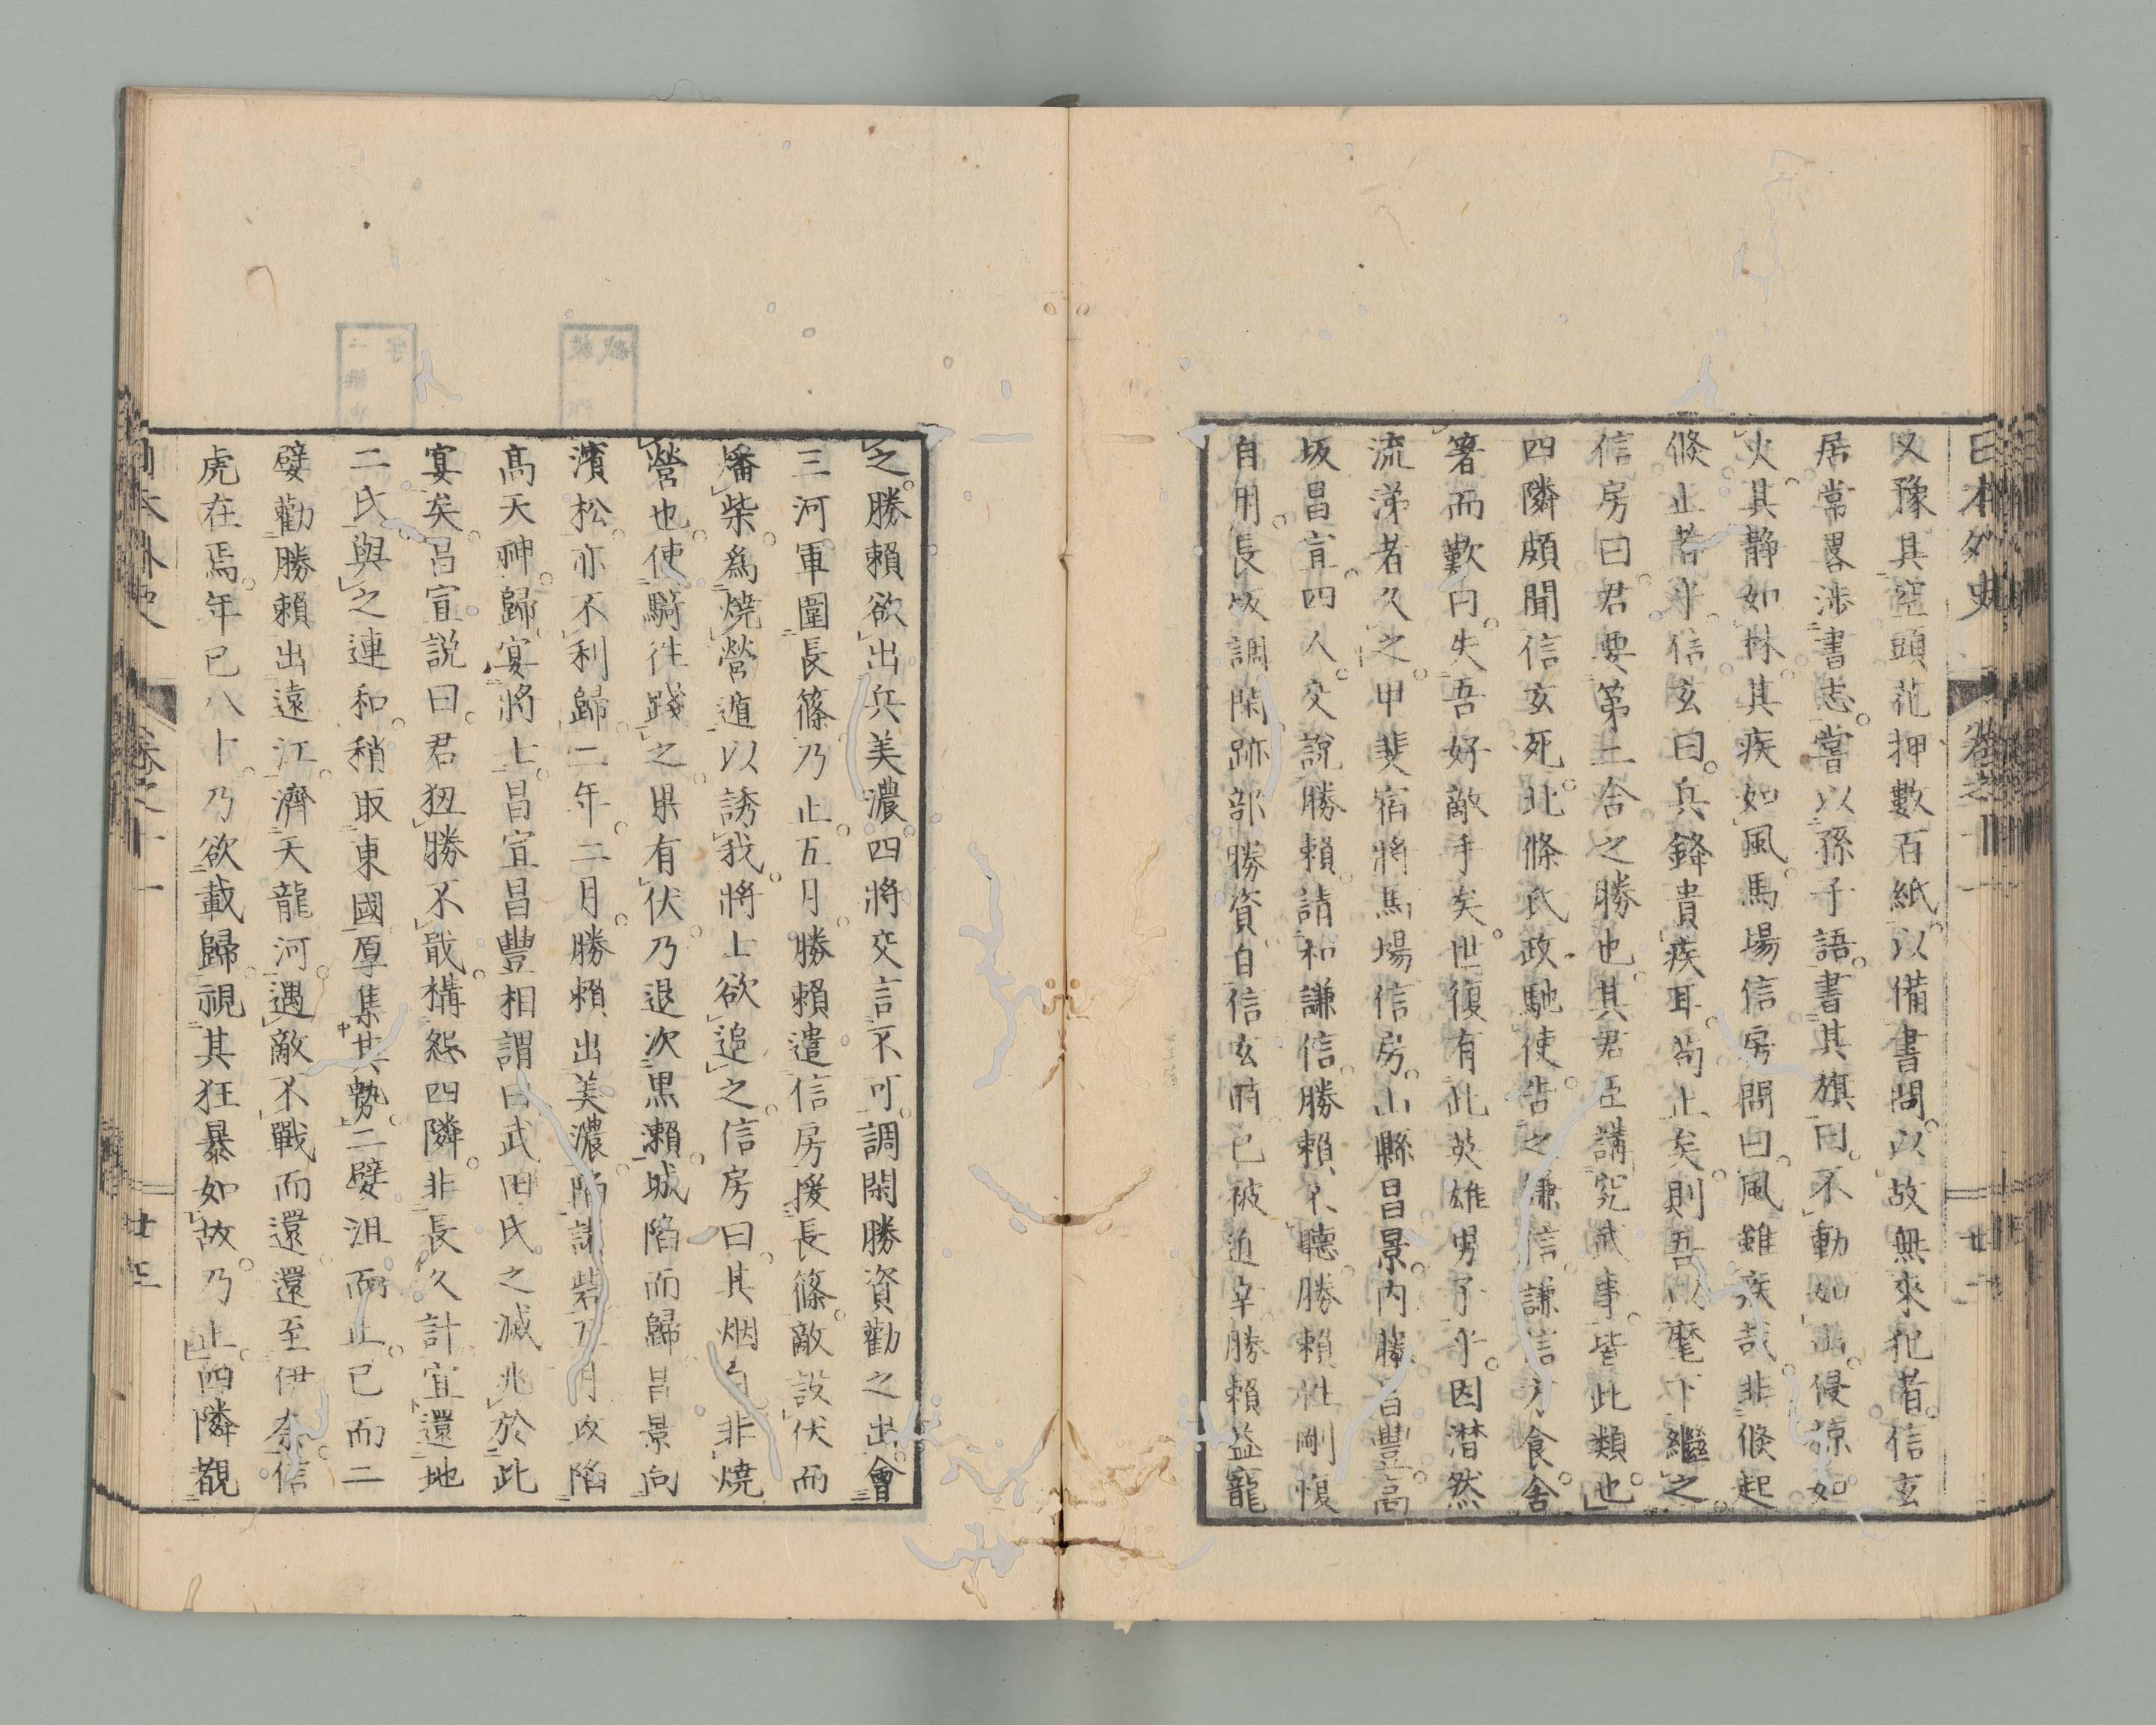 日本外史 卷之十一 廿二
又豫其空頭花押數百紙以備書問以故無來犯者信玄
居常畧渉書志嘗以孫子語書其旗曰不動如山侵掠如
火其靜如林其疾如風馬場信房問曰風雖疾哉非倏起
倏止者乎信玄曰兵鋒貴疾耳苟止矣則吾以麾下繼之
信房曰君要第二合之勝也其君臣講究武事皆此類也
四隣頗聞信玄死北條氏政馳使告之謙信謙信方食舍
箸而歎曰失吾好敵手矣世復有此英雄男子乎因潜然
流涕者久之甲斐宿將馬場信房山縣昌景内藤昌豐高
坂昌宣四人交說勝賴請和謙信勝賴不聽勝賴性剛愎
自用長坂調閑跡部勝資自信玄時已被近幸勝賴益寵
之勝賴欲出兵美濃四將交言不可調閑勝資勸之出會
三河軍圍長篠乃止五月勝賴遣信房援長篠敵設伏而
燔柴爲燒營遁以誘我將士欲追之信房曰其烟白非燒
營也使騎往踐之果有伏乃退次黒瀬城陷而歸昌景向
濱松亦不利歸二年二月勝賴出美濃陷諸砦五月攻陷
高天神歸宴將士昌宣昌豐相謂曰武田氏之滅兆於此
宴矣昌宣説曰君狃勝不戢構怨四隣非長久計宜還地
二氏與之連和稍取東國厚集其勢二嬖沮而止已而二
嬖勸勝賴出遠江濟天龍河遇敵不戰而還還至伊奈信
虎在焉年已八十乃欲載歸視其狂暴如故乃止四隣觀
日本外史 卷之十一 廿三